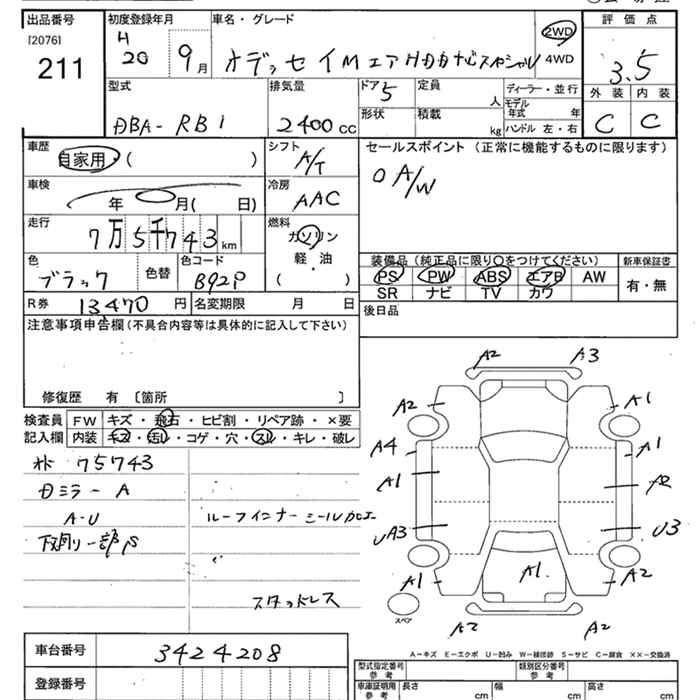 出品番号 初度登録年月 車名・グレード 2WD 評価点
[2076] H
211 20 9月 オデッセイMエアHDDナビスペシャル 4WD 3.5
外装 内装
型式 排気量 ドア 5 定員 人 ディーラー・並行
DBA-RB1 2400cc 形状 積載 kg モデル年式 年 C C
ハンドル 左・右
車歴 シフト セールスポイント (正常に機能するものに限ります)
自家用・( ) A/T 〇 A/W
車検 冷房
年 月( 日) AAC
走行 燃料
7万5千743km ガソリン
軽・油 装備品 (純正品に限り〇をつけてください) 新車保証書
色 色コード ( ) PS PW ABS エアB AW 有・無
ブラック 色替 B92P SR ナビ TV カワ
R券 13470円 名変期限 月 日 後日品
注意事項申告欄(不具合内容等は具体的に記入して下さい)
修復歴 有〔箇所 〕
検査員 FW キズ・飛石・ヒビ割・リペア跡・×要
記入欄 内装 キズ・汚レ・コゲ・穴・スレ・キレ・破レ
75743
Dミラー A
A-U ルーフインナーシール加工
下回り一部S
スタッドレス
A2 A3
A2 A1
A4 A1
A1 A2
UA3 U3
A1 A1 A2
スペア
A2 A2
A-キズ E-エクボ U-凹み W-補修跡 S-サビ C-腐食 ××-交換済
車台番号 3424208
登録番号
型式指定番号 参考 類別区分番号 参考
車庫証明用 参考 長さ cm 幅 cm 高さ cm